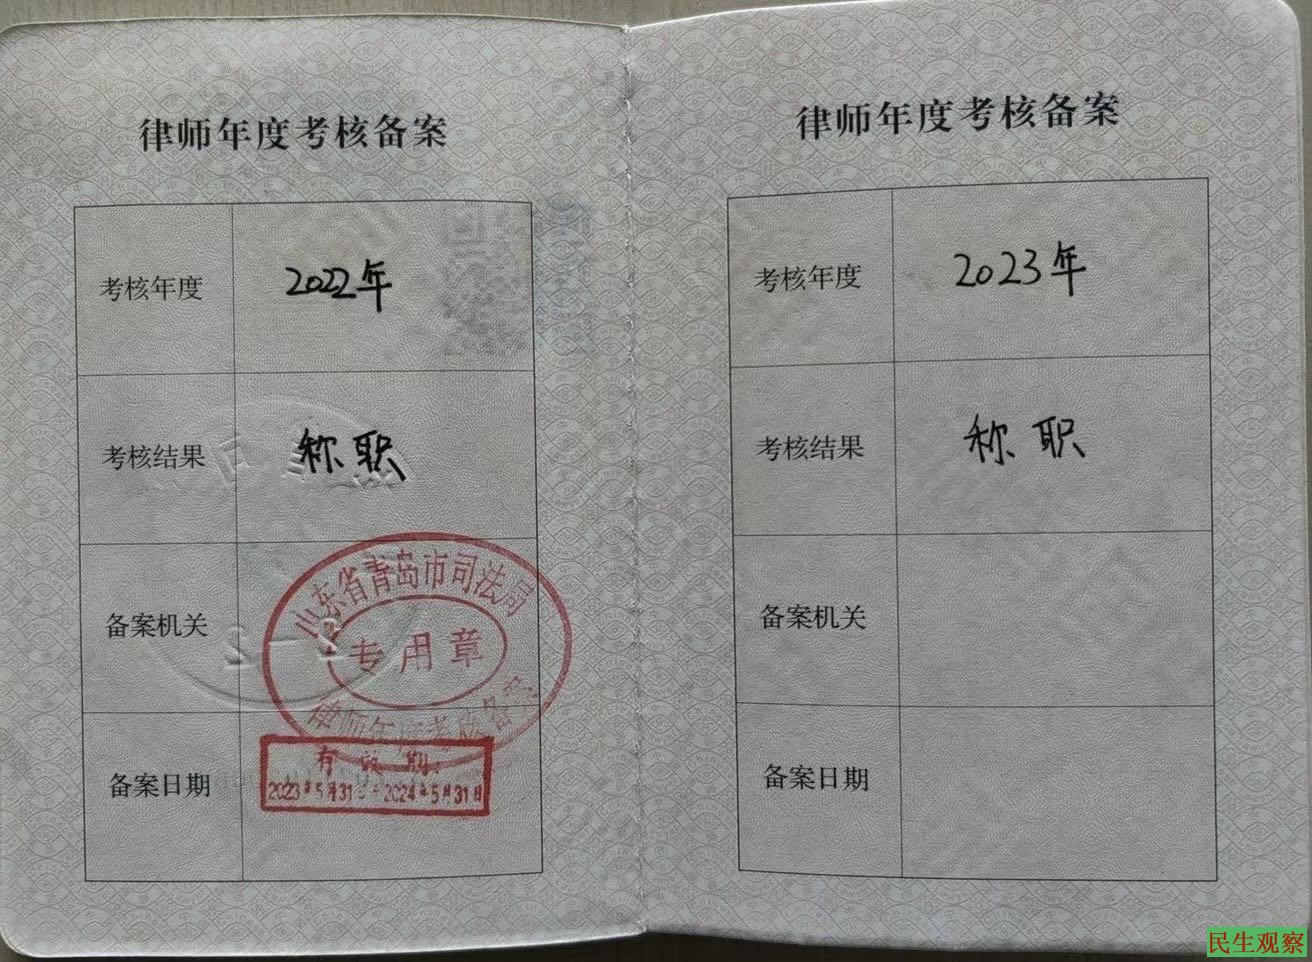 律师年度考核备案
考核年度 2022年
考核结果 称职
备案机关
山东省青岛市司法局
专用章
律师年度考核备案
备案日期
有效期:
2023年5月31日-2024年5月31日
律师年度考核备案
考核年度 2023年
考核结果 称职
备案机关
备案日期
民生观察